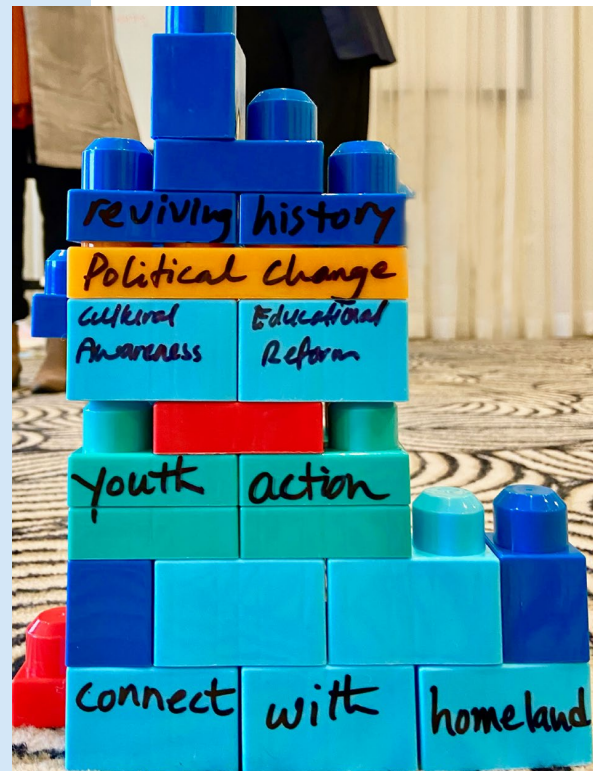 reviving history
Political Change
Cultural Educational
Awareness Reform
youth action
connect with homeland